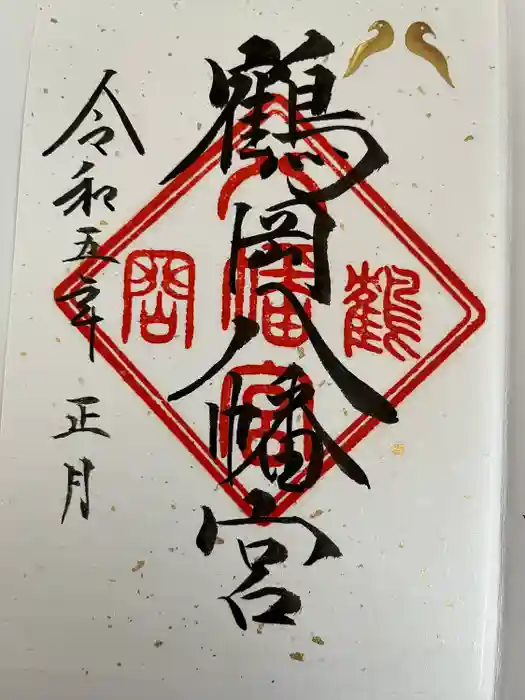 鶴岡八幡宮
令和五年 正月
鶴
岡
八
幡
宮